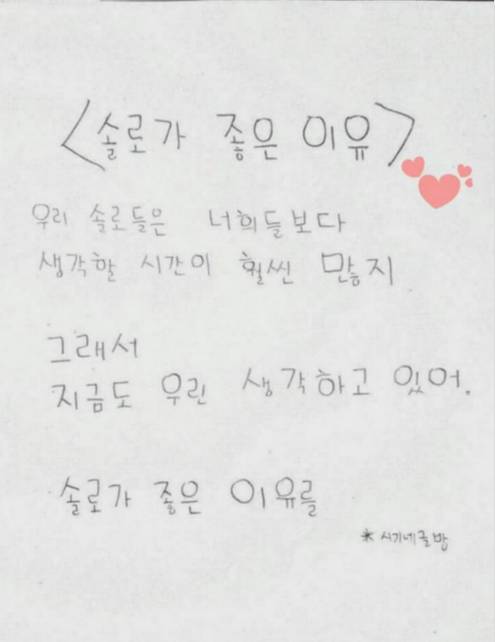 <솔로가 좋은 이유>
우리 솔로들은 너희들보다
생각할 시간이 훨씬 많지
그래서
지금도 우린 생각하고 있어.
솔로가 좋은 이유를
* 시기네글방